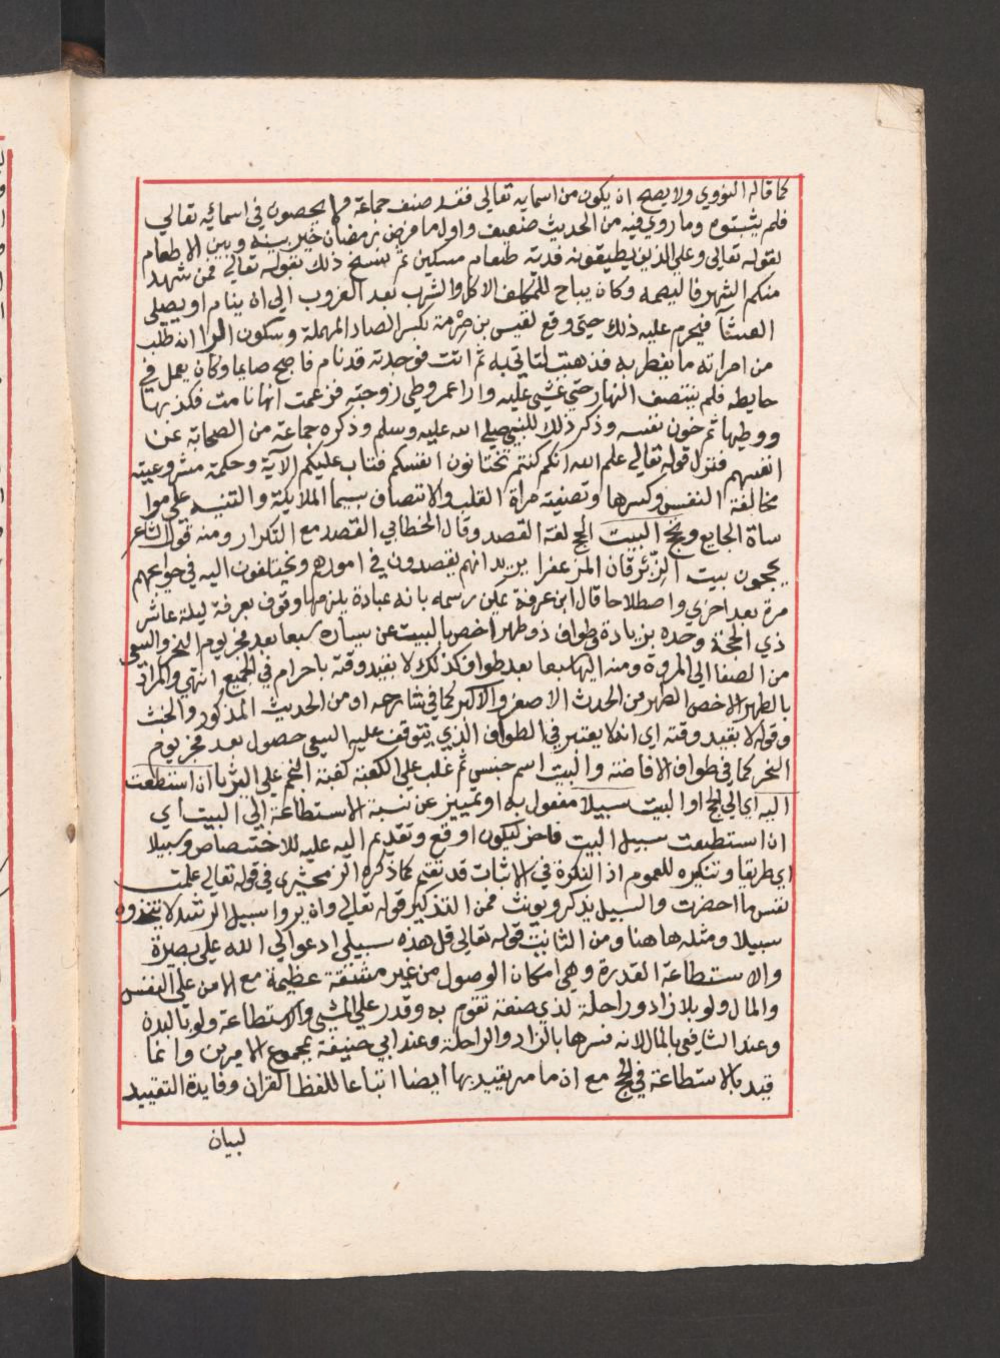 كما قاله النووي ولا يصح ان يكون من اسمايه تعالي فقد صنف جماعة لا يحصون في اسمائه تعالي
فلم يثبتوه وما روي فيه من الحديث ضعيف واول ما فرض رمضان خير بينه وبين الاطعام
لقوله تعالي وعلي الذين يطيقونه فدية طعام مسكين ثم نسخ ذلك بقوله تعالي فمن شهد
منكم الشهر فاليصمه وكان يباح للمكلف الاكل والشرب بعد الغروب الي ان ينام او يصلي
العشآ فيحرم عليه ذلك حتي وقع لقيس بن صرمة بكسر الصاد المهملة وسكون الرا انه طلب
من امراته ما يفطر به فذهبت لتاتي به ثم اتت فوجدته قد نام فاصبح صايما وكان يعمل في
حايطه فلم ينتصف النهار حتي غشي عليه واراد عمر وطي زوجته فزعمت انها نامت فكذبها
ووطيها ثم خون نفسه وذكر ذلك للنبي صلي الله عليه وسلم وذكره جماعة من الصحابة عن
انفسهم فنزل قوله تعالي علم الله انكم كنتم تختانون انفسكم فتاب عليكم الاية وحكمة مشروعيته
مخالفة النفس وكسرها وتصفية مرآة القلب والاتصاف بسيما الملايكة والتنبيه علي موا
ساة الجايع وبحج البيت الحج لغة القصد وقال الخطابي القصد مع التكرار ومنه قول الشاعر
يحجون بيت الزبرقان المزعفرا يريد انهم يقصدون في امورهم ويختلفون اليه في حوايجهم
مرة بعد اخري واصطلاحا قال ابن عرفة يمكن رسمه بانه عبادة يلزمها وقوف بعرفة ليلة عاشر
ذي الحجة وحده بزيادة وطواف ذو طهر اخص بالبيت عن يساره سبعا بعد فجر يوم النحر والسعي
من الصفا الي المروة ومنه اليها سبعا بعد طواف كذلك لا بقيد وقته باحرام في الجميع انتهي والمراد
بالطهر الاخص الطهر من الحدث الاصغر والاكبر كما في شارحه او من الحديث المذكور والخبث
وقوله لا بقيد وقته اي انه لا يعتبر في الطواف الذي يتوقف عليه السعي حصول بعد فجر يوم
النحر كما في طواف الافاضة والبيت اسم جنس ثم غلب علي الكعبة كغلبة النجم علي الثريا ان استطعت
اليه اي الي الحج او البيت سبيلا مفعول به او تمييز عن نسبة الاستطاعة الي البيت اي
ان استطعت سبيل البيت فاخر ليكون اوقع وتقديم اليه عليه للاختصاص وسبيلا
اي طريقا وتنكيره للعموم اذ النكرة في الاثبات قد تعم كما ذكره الزمخشري في قوله تعالي علمت
نفس ما احضرت والسبيل يذكر ويونث فمن التذكير قوله تعالي وان يروا سبيل الرشد لا يتخذوه
سبيلا ومثله ها هنا ومن التانيث قوله تعالي قل هذه سبيلي ادعوا الي الله علي بصيرة
والاستطاعة القدرة وهي امكان الوصول من غير مشقة عظيمة مع الامن علي النفس
والمال ولو بلا زاد وراحلة لذي صنعة تقوم به وقدر علي المشي والاستطاعة ولو بالبدن
وعند الشافعي بالمال لانه فسرها بالزاد والراحلة وعند ابي حنيفة بمجموع الامرين وانما
قيد بالاستطاعة في الحج مع ان ما مر يقيد بها ايضا اتباعا للفظ القران وفايدة التقييد
لبيان